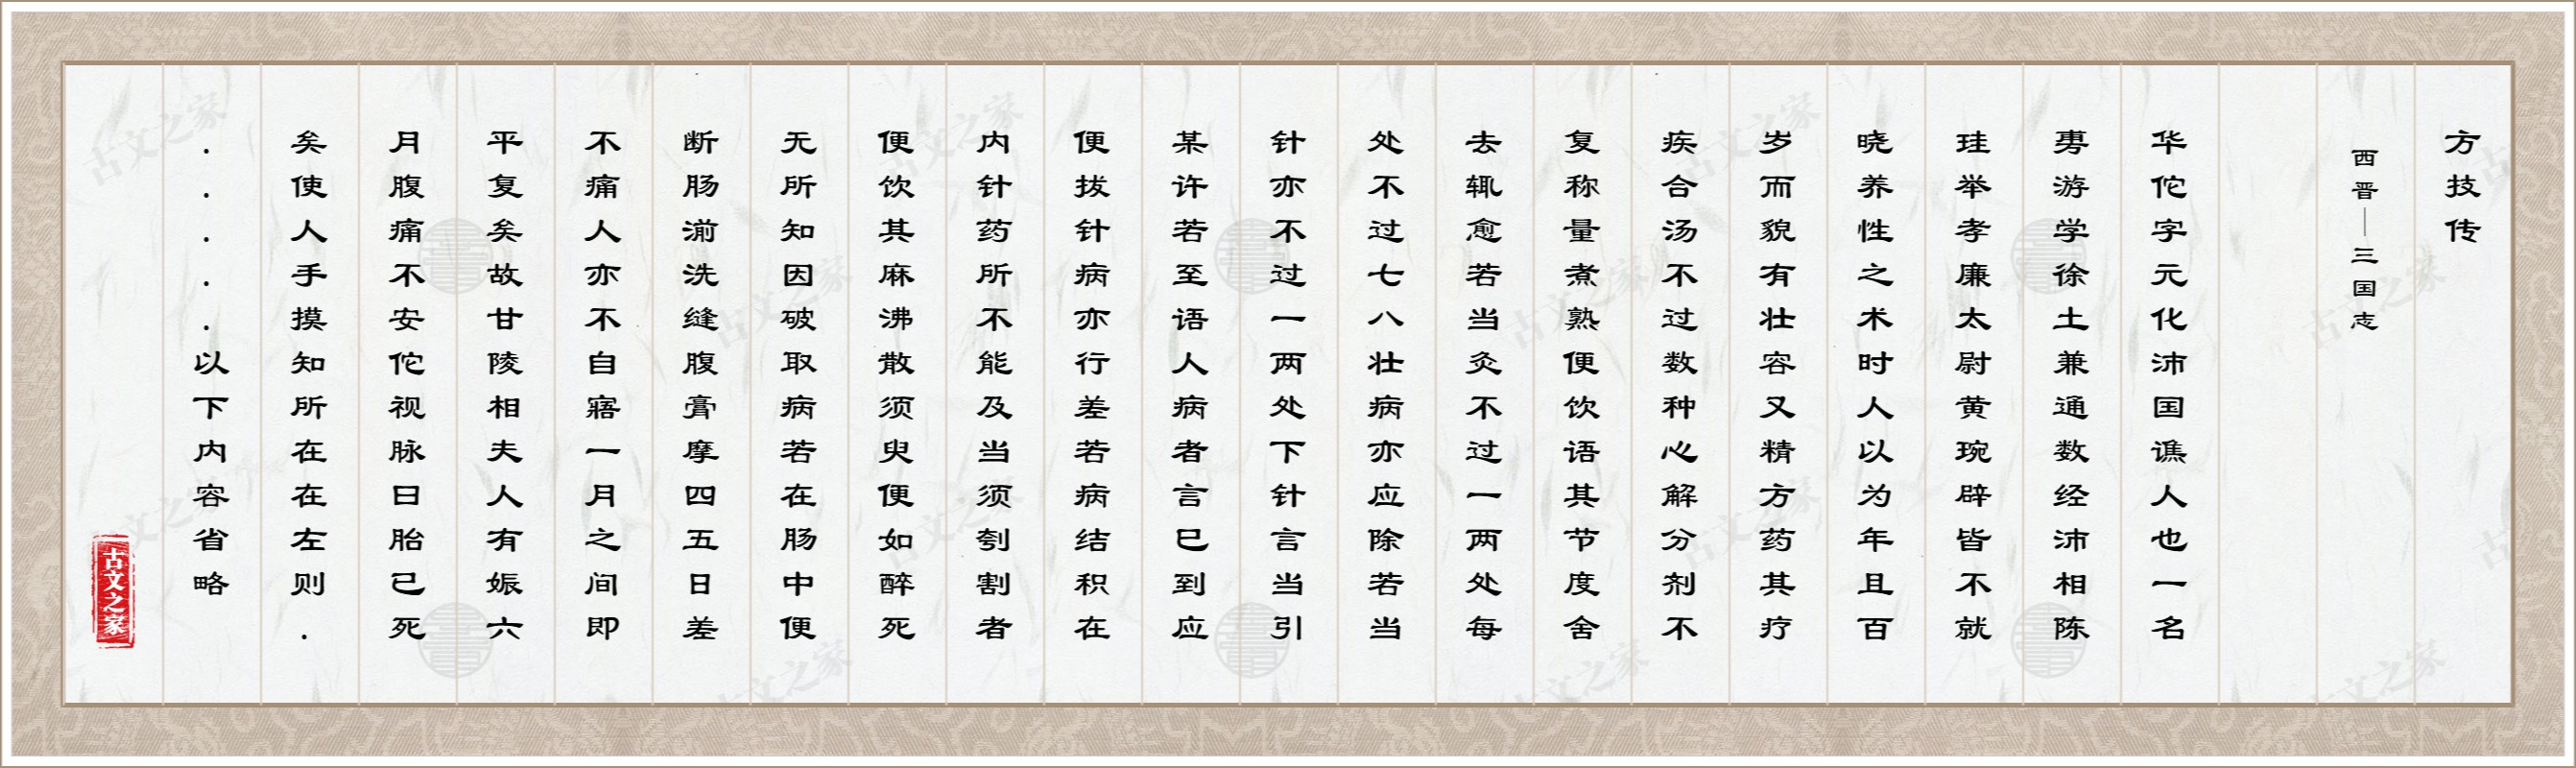 方技传
西晋—三国志
华佗字元化沛国谯人也一名
旉游学徐土兼通数经沛相陈
珪举孝廉太尉黄琬辟皆不就
晓养性之术时人以为年且百
岁而貌有壮容又精方药其疗
疾合汤不过数种心解分剂不
复称量煮熟便饮语其节度舍
去辄愈若当灸不过一两处每
处不过七八壮病亦应除若当
针亦不过一两处下针言当引
某许若至语人病者言已到应
便拔针病亦行差若病结积在
内针药所不能及当须刳割者
便饮其麻沸散须臾便如醉死
无所知因破取病若在肠中便
断肠湔洗缝腹膏摩四五日差
不痛人亦不自寤一月之间即
平复矣故甘陵相夫人有娠六
月腹痛不安佗视脉曰胎已死
矣使人手摸知所在在左则.
.....以下内容省略
古文之家